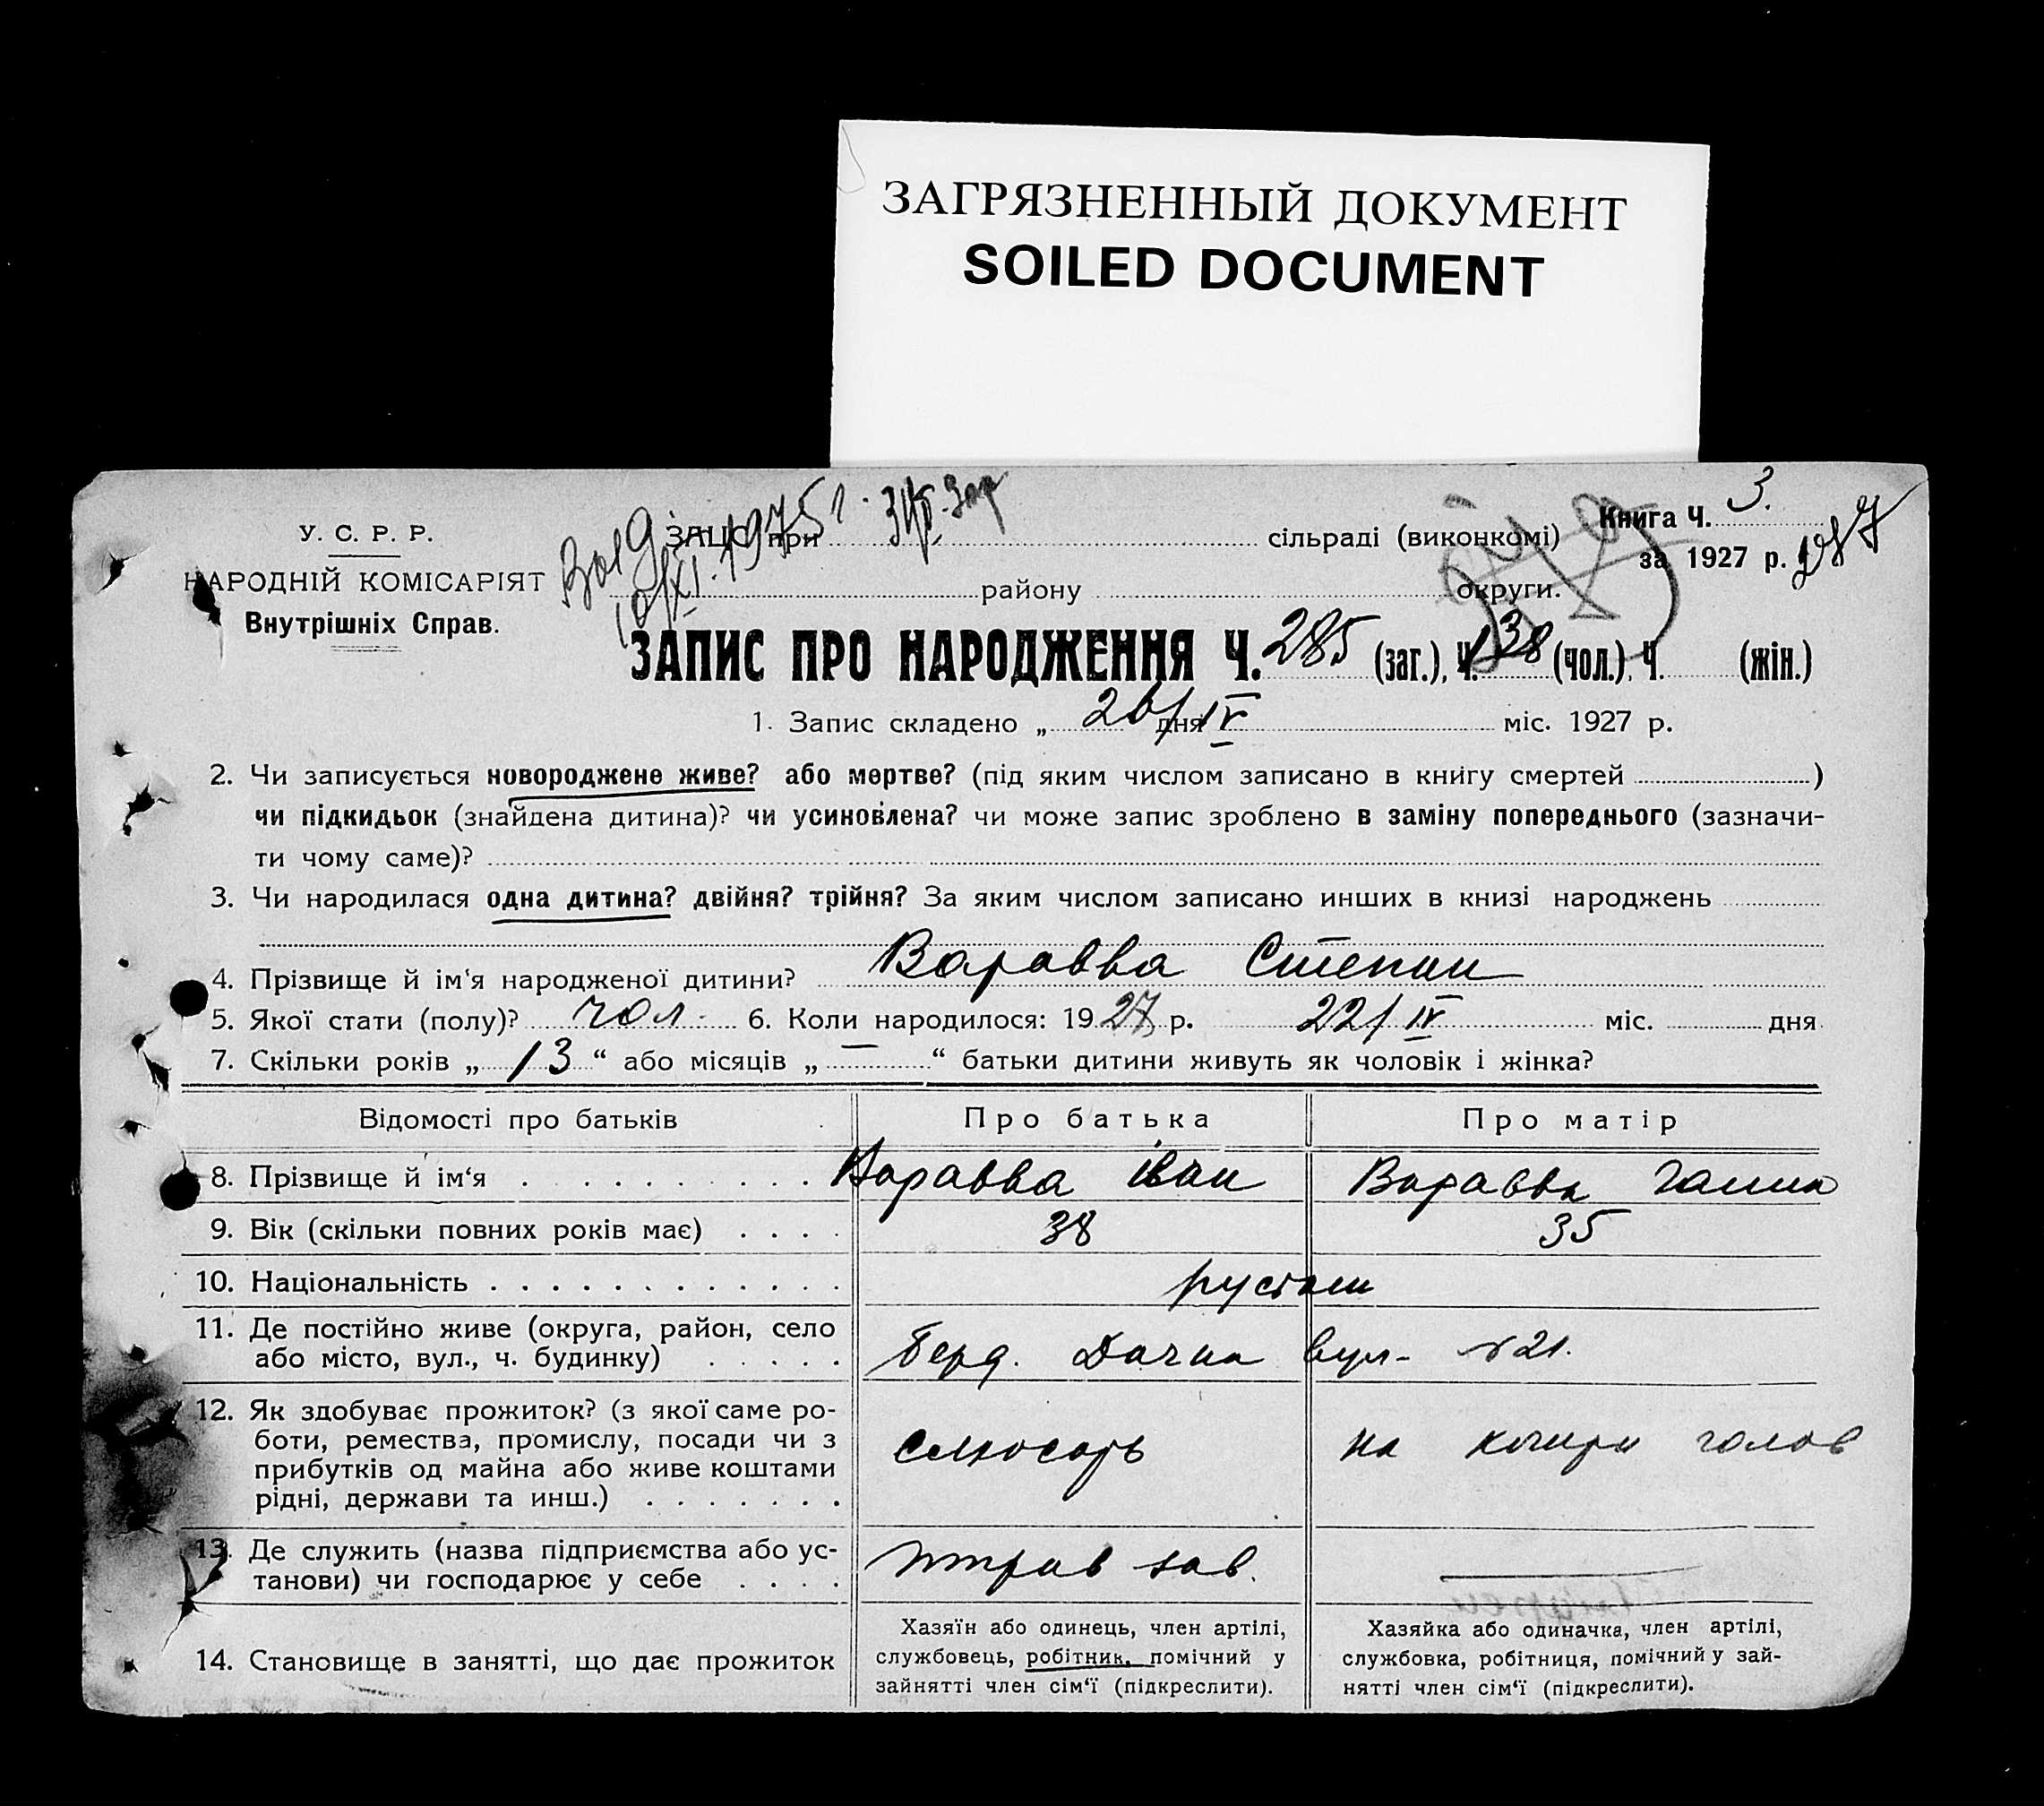 ЗАГРЯЗНЕННЫЙ ДОКУМЕНТ
SOILED DOCUMENT
У. С. Р. Р.
НАРОДНІЙ КОМІСАРІЯТ
Внутрішніх Справ.
Книга Ч. 3.
за 1927 р.
ЗАЦС при сільраді (виконкомі)
10/XI. 1975 г.
району округи.
ЗАПИС ПРО НАРОДЖЕННЯ Ч. 285 (заг.), Ч. 138 (чол.), Ч. (жін.)
1. Запис складено „ 26/IV дня міс. 1927 р.
2. Чи записується новороджене живе? або мертве? (під яким числом записано в книгу смертей )
чи підкидьок (знайдена дитина)? чи усиновлена? чи може запис зроблено в заміну попереднього (зазначи-
ти чому саме)?
3. Чи народилася одна дитина? двійня? трійня? За яким числом записано инших в книзі народжень
4. Прізвище й ім‘я народженої дитини? Варавва Степан
5. Якої стати (полу)? чол. 6. Коли народилося: 1927 р. 22/IV міс. дня
7. Скільки років „ 13 “ або місяців „ — “ батьки дитини живуть як чоловік і жінка?
Відомості про батьків Про батька Про матір
8. Прізвище й ім‘я Варавва Іван Варавва Ганна
9. Вік (скільки повних років має) 38 35
10. Національність
11. Де постійно живе (округа, район, село
або місто, вул., ч. будинку) Берд. Дачна вул- №21.
12. Як здобуває прожиток? (з якої саме ро-
боти, ремества, промислу, посади чи з
прибутків од майна або живе коштами
рідні, держави та инш.) слюсарь на кошти голов
13. Де служить (назва підприємства або ус-
танови) чи господарює у себе зав.
14. Становище в занятті, що дає прожиток
Хазяїн або одинець, член артілі,
службовець, робітник, помічний у
зайнятті член сім‘ї (підкреслити).
Хазяйка або одиначка, член артілі,
службовка, робітниця, помічний у зай-
нятті член сім‘ї (підкреслити).